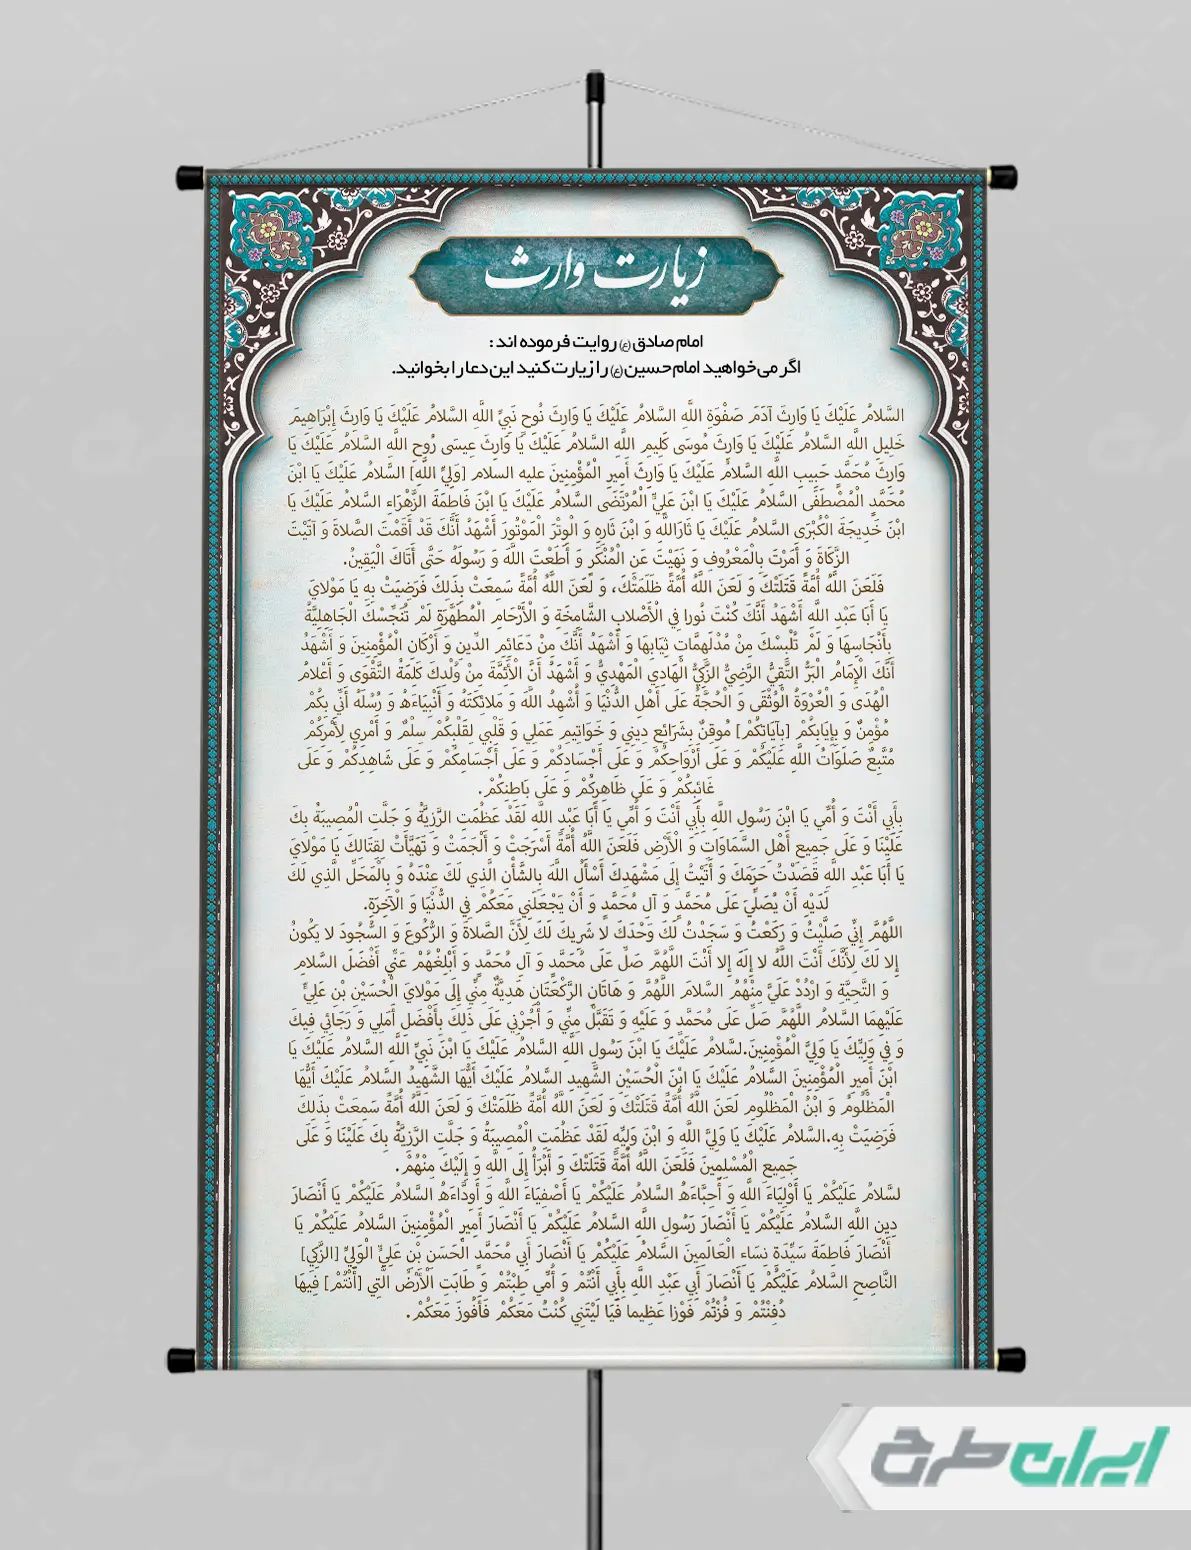 زیارت وارث
امام صادق (ع) روایت فرموده اند :
اگر می‌خواهید امام حسین (ع) را زیارت کنید این دعا را بخوانید.
السَّلامُ عَلَيْكَ يَا وَارِثَ آدَمَ صَفْوَةِ اللَّهِ السَّلامُ عَلَيْكَ يَا وَارِثَ نُوحٍ نَبِيِّ اللَّهِ السَّلامُ عَلَيْكَ يَا وَارِثَ إِبْرَاهِيمَ
خَلِيلِ اللَّهِ السَّلامُ عَلَيْكَ يَا وَارِثَ مُوسَى كَلِيمِ اللَّهِ السَّلامُ عَلَيْكَ يَا وَارِثَ عِيسَى رُوحِ اللَّهِ السَّلامُ عَلَيْكَ يَا
وَارِثَ مُحَمَّدٍ حَبِيبِ اللَّهِ السَّلامُ عَلَيْكَ يَا وَارِثَ أَمِيرِ الْمُؤْمِنِينَ عليه السلام [وَلِيِّ اللَّهِ] السَّلامُ عَلَيْكَ يَا ابْنَ
مُحَمَّدٍ الْمُصْطَفَى السَّلامُ عَلَيْكَ يَا ابْنَ عَلِيٍّ الْمُرْتَضَى السَّلامُ عَلَيْكَ يَا ابْنَ فَاطِمَةَ الزَّهْرَاءِ السَّلامُ عَلَيْكَ يَا
ابْنَ خَدِيجَةَ الْكُبْرَى السَّلامُ عَلَيْكَ يَا ثَارَاللَّهِ وَ ابْنَ ثَارِهِ وَ الْوِتْرَ الْمَوْتُورَ أَشْهَدُ أَنَّكَ قَدْ أَقَمْتَ الصَّلاةَ وَ آتَيْتَ
الزَّكَاةَ وَ أَمَرْتَ بِالْمَعْرُوفِ وَ نَهَيْتَ عَنِ الْمُنْكَرِ وَ أَطَعْتَ اللَّهَ وَ رَسُولَهُ حَتَّى أَتَاكَ الْيَقِينُ.
فَلَعَنَ اللَّهُ أُمَّةً قَتَلَتْكَ وَ لَعَنَ اللَّهُ أُمَّةً ظَلَمَتْكَ، وَ لَعَنَ اللَّهُ أُمَّةً سَمِعَتْ بِذَلِكَ فَرَضِيَتْ بِهِ يَا مَوْلايَ
يَا أَبَا عَبْدِ اللَّهِ أَشْهَدُ أَنَّكَ كُنْتَ نُورا فِي الْأَصْلابِ الشَّامِخَةِ وَ الْأَرْحَامِ الْمُطَهَّرَةِ لَمْ تُنَجِّسْكَ الْجَاهِلِيَّةُ
بِأَنْجَاسِهَا وَ لَمْ تُلْبِسْكَ مِنْ مُدْلَهِمَّاتِ ثِيَابِهَا وَ أَشْهَدُ أَنَّكَ مِنْ دَعَائِمِ الدِّينِ وَ أَرْكَانِ الْمُؤْمِنِينَ وَ أَشْهَدُ
أَنَّكَ الْإِمَامُ الْبَرُّ التَّقِيُّ الرَّضِيُّ الزَّكِيُّ الْهَادِي الْمَهْدِيُّ وَ أَشْهَدُ أَنَّ الْأَئِمَّةَ مِنْ وُلْدِكَ كَلِمَةُ التَّقْوَى وَ أَعْلامُ
الْهُدَى وَ الْعُرْوَةُ الْوُثْقَى وَ الْحُجَّةُ عَلَى أَهْلِ الدُّنْيَا وَ أُشْهِدُ اللَّهَ وَ مَلائِكَتَهُ وَ أَنْبِيَاءَهُ وَ رُسُلَهُ أَنِّي بِكُمْ
مُؤْمِنٌ وَ بِإِيَابِكُمْ [بِآيَاتِكُمْ] مُوقِنٌ بِشَرَائِعِ دِينِي وَ خَوَاتِيمِ عَمَلِي وَ قَلْبِي لِقَلْبِكُمْ سِلْمٌ وَ أَمْرِي لِأَمْرِكُمْ
مُتَّبِعٌ صَلَوَاتُ اللَّهِ عَلَيْكُمْ وَ عَلَى أَرْوَاحِكُمْ وَ عَلَى أَجْسَادِكُمْ وَ عَلَى أَجْسَامِكُمْ وَ عَلَى شَاهِدِكُمْ وَ عَلَى
غَائِبِكُمْ وَ عَلَى ظَاهِرِكُمْ وَ عَلَى بَاطِنِكُمْ.
بِأَبِي أَنْتَ وَ أُمِّي يَا ابْنَ رَسُولِ اللَّهِ بِأَبِي أَنْتَ وَ أُمِّي يَا أَبَا عَبْدِ اللَّهِ لَقَدْ عَظُمَتِ الرَّزِيَّةُ وَ جَلَّتِ الْمُصِيبَةُ بِكَ
عَلَيْنَا وَ عَلَى جَمِيعِ أَهْلِ السَّمَاوَاتِ وَ الْأَرْضِ فَلَعَنَ اللَّهُ أُمَّةً أَسْرَجَتْ وَ أَلْجَمَتْ وَ تَهَيَّأَتْ لِقِتَالِكَ يَا مَوْلايَ
يَا أَبَا عَبْدِ اللَّهِ قَصَدْتُ حَرَمَكَ وَ أَتَيْتُ إِلَى مَشْهَدِكَ أَسْأَلُ اللَّهَ بِالشَّأْنِ الَّذِي لَكَ عِنْدَهُ وَ بِالْمَحَلِّ الَّذِي لَكَ
لَدَيْهِ أَنْ يُصَلِّيَ عَلَى مُحَمَّدٍ وَ آلِ مُحَمَّدٍ وَ أَنْ يَجْعَلَنِي مَعَكُمْ فِي الدُّنْيَا وَ الْآخِرَةِ.
اللَّهُمَّ إِنِّي صَلَّيْتُ وَ رَكَعْتُ وَ سَجَدْتُ لَكَ وَحْدَكَ لا شَرِيكَ لَكَ لِأَنَّ الصَّلاةَ وَ الرُّكُوعَ وَ السُّجُودَ لا يَكُونُ
إِلا لَكَ لِأَنَّكَ أَنْتَ اللَّهُ لا إِلَهَ إِلا أَنْتَ اللَّهُمَّ صَلِّ عَلَى مُحَمَّدٍ وَ آلِ مُحَمَّدٍ وَ أَبْلِغْهُمْ عَنِّي أَفْضَلَ السَّلامِ
وَ التَّحِيَّةِ وَ ارْدُدْ عَلَيَّ مِنْهُمُ السَّلامَ اللَّهُمَّ وَ هَاتَانِ الرَّكْعَتَانِ هَدِيَّةٌ مِنِّي إِلَى مَوْلايَ الْحُسَيْنِ بْنِ عَلِيٍّ
عَلَيْهِمَا السَّلامُ اللَّهُمَّ صَلِّ عَلَى مُحَمَّدٍ وَ عَلَيْهِ وَ تَقَبَّلْ مِنِّي وَ أْجُرْنِي عَلَى ذَلِكَ بِأَفْضَلِ أَمَلِي وَ رَجَائِي فِيكَ
وَ فِي وَلِيِّكَ يَا وَلِيَّ الْمُؤْمِنِينَ.لسَّلامُ عَلَيْكَ يَا ابْنَ رَسُولِ اللَّهِ السَّلامُ عَلَيْكَ يَا ابْنَ نَبِيِّ اللَّهِ السَّلامُ عَلَيْكَ يَا
ابْنَ أَمِيرِ الْمُؤْمِنِينَ السَّلامُ عَلَيْكَ يَا ابْنَ الْحُسَيْنِ الشَّهِيدِ السَّلامُ عَلَيْكَ أَيُّهَا الشَّهِيدُ السَّلامُ عَلَيْكَ أَيُّهَا
الْمَظْلُومُ وَ ابْنُ الْمَظْلُومِ لَعَنَ اللَّهُ أُمَّةً قَتَلَتْكَ وَ لَعَنَ اللَّهُ أُمَّةً ظَلَمَتْكَ وَ لَعَنَ اللَّهُ أُمَّةً سَمِعَتْ بِذَلِكَ
فَرَضِيَتْ بِهِ.السَّلامُ عَلَيْكَ يَا وَلِيَّ اللَّهِ وَ ابْنَ وَلِيِّهِ لَقَدْ عَظُمَتِ الْمُصِيبَةُ وَ جَلَّتِ الرَّزِيَّةُ بِكَ عَلَيْنَا وَ عَلَى
جَمِيعِ الْمُسْلِمِينَ فَلَعَنَ اللَّهُ أُمَّةً قَتَلَتْكَ وَ أَبْرَأُ إِلَى اللَّهِ وَ إِلَيْكَ مِنْهُمْ.
لسَّلامُ عَلَيْكُمْ يَا أَوْلِيَاءَ اللَّهِ وَ أَحِبَّاءَهُ السَّلامُ عَلَيْكُمْ يَا أَصْفِيَاءَ اللَّهِ وَ أَوِدَّاءَهُ السَّلامُ عَلَيْكُمْ يَا أَنْصَارَ
دِينِ اللَّهِ السَّلامُ عَلَيْكُمْ يَا أَنْصَارَ رَسُولِ اللَّهِ السَّلامُ عَلَيْكُمْ يَا أَنْصَارَ أَمِيرِ الْمُؤْمِنِينَ السَّلامُ عَلَيْكُمْ يَا
أَنْصَارَ فَاطِمَةَ سَيِّدَةِ نِسَاءِ الْعَالَمِينَ السَّلامُ عَلَيْكُمْ يَا أَنْصَارَ أَبِي مُحَمَّدٍ الْحَسَنِ بْنِ عَلِيٍّ الْوَلِيِّ [الزَّكِيِ]
النَّاصِحِ السَّلامُ عَلَيْكُمْ يَا أَنْصَارَ أَبِي عَبْدِ اللَّهِ بِأَبِي أَنْتُمْ وَ أُمِّي طِبْتُمْ وَ طَابَتِ الْأَرْضُ الَّتِي [أَنْتُمْ] فِيهَا
دُفِنْتُمْ وَ فُزْتُمْ فَوْزا عَظِيما فَيَا لَيْتَنِي كُنْتُ مَعَكُمْ فَأَفُوزَ مَعَكُمْ.
ایران طرح